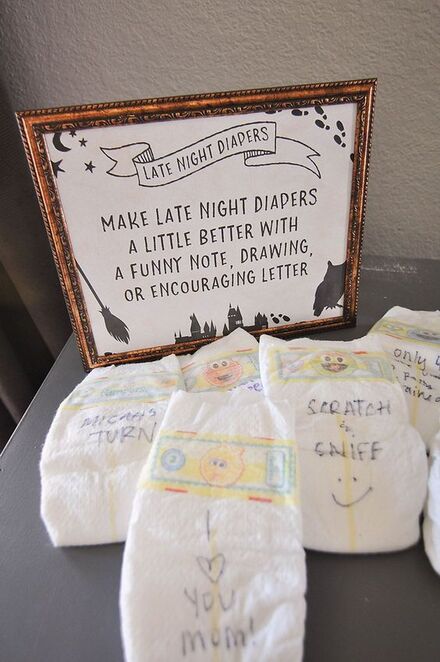 LATE NIGHT DIAPERS
MAKE LATE NIGHT DIAPERS
A LITTLE BETTER WITH
A FUNNY NOTE, DRAWING,
OR ENCOURAGING LETTER
MICAH'S
TURN
SCRATCH
&
SNIFF
only
I
♡
YOU
mom!